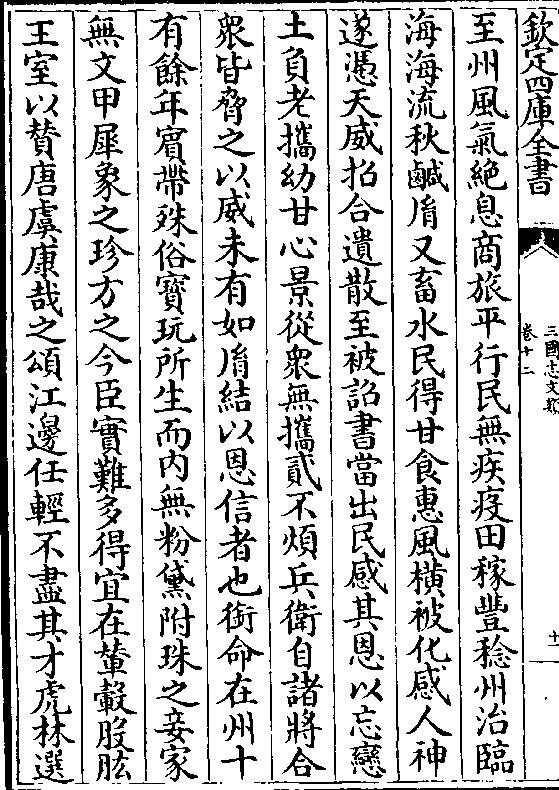 欽定四庫全書
三國志文類
卷十二
十一
至州風氣絶息商旅平行民無疾疫田稼豐稔州治臨
海海流秋鹹胤又畜水民得甘食惠風横被化感人神
遂憑天威招合遺散至被詔書當出民感其恩以忘戀
土負老攜幼甘心景從衆無攜貳不煩兵衛自諸將合
衆皆脅之以威未有如胤結以恩信者也銜命在州十
有餘年賔帶殊俗寳玩所生而内無粉黛附珠之妾家
無文甲犀象之珍方之今臣實難多得宜在輦轂股肱
王室以賛唐虞康哉之頌江邊任輕不盡其才虎林選